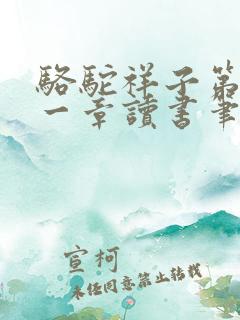 駱駝祥子第
一章讀書筆
宣柯
未經同意禁止轉載